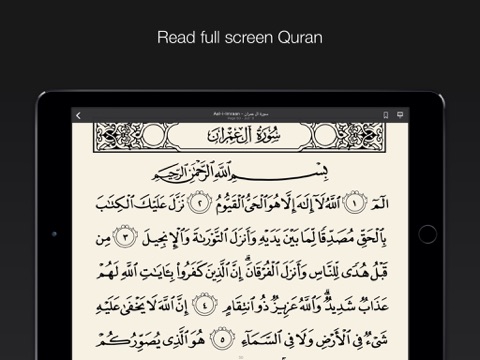 Read full screen Quran
سورة آل عمران - Aal-i-Imraan
سُورَةُ آلِ عِمْرَان
بِسْمِ ٱللَّهِ ٱلرَّحْمَٰنِ ٱلرَّحِيمِ
الٓمٓ ١ ٱللَّهُ لَآ إِلَٰهَ إِلَّا هُوَ ٱلْحَىُّ ٱلْقَيُّومُ ٢ نَزَّلَ عَلَيْكَ ٱلْكِتَٰبَ
بِٱلْحَقِّ مُصَدِّقًا لِّمَا بَيْنَ يَدَيْهِ وَأَنزَلَ ٱلتَّوْرَىٰةَ وَٱلْإِنجِيلَ ٣ مِن
قَبْلُ هُدًى لِّلنَّاسِ وَأَنزَلَ ٱلْفُرْقَانَ ۗ إِنَّ ٱلَّذِينَ كَفَرُوا۟ بِـَٔايَٰتِ ٱللَّهِ لَهُمْ
عَذَابٌ شَدِيدٌ ۗ وَٱللَّهُ عَزِيزٌ ذُو ٱنتِقَامٍ ٤ إِنَّ ٱللَّهَ لَا يَخْفَىٰ عَلَيْهِ
شَىْءٌ فِى ٱلْأَرْضِ وَلَا فِى ٱلسَّمَآءِ ٥ هُوَ ٱلَّذِى يُصَوِّرُكُمْ